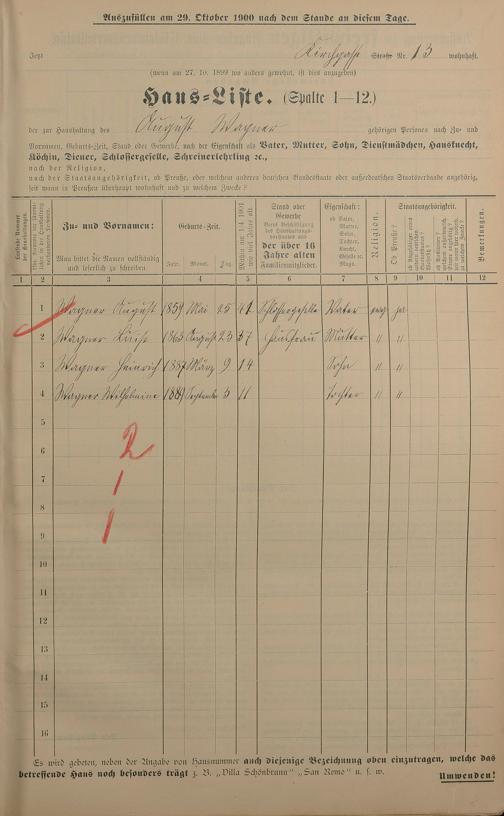 Auszufüllen am 29. Oktober 1900 nach dem Stande an diesem Tage.
Jetzt Kirchgasse Straße Nr. 13 wohnhaft.
(wenn am 27. 10. 1899 wo anders gewohnt, ist dies anzugeben)
Haus-Liste. (Spalte 1—12.)
der zur Haushaltung des August Wagner gehörigen Personen nach Zu- und
Vornamen, Geburts-Zeit, Stand oder Gewerbe, nach der Eigenschaft als Vater, Mutter, Sohn, Dienstmädchen, Hausknecht,
Köchin, Diener, Schlossergeselle, Schreinerlehrling 2c.,
nach der Religion,
nach der Staatsangehörigkeit, ob Preuße, oder welchem anderen deutschen Bundesstaate oder außerdeutschen Staatsverbande angehörig,
seit wann in Preußen überhaupt wohnhaft und zu welchem Zwecke?
Zu- und Vornamen:
Man bittet die Namen vollständig und leserlich zu schreiben
Geburts-Zeit.
Jahr. Monat. Tag.
Stand oder Gewerbe
der über 16 Jahre alten Familienmitglieder.
Eigenschaft:
ob Vater, Mutter, Sohn, Tochter, Knecht, Geselle 2c. Magd.
Religion.
Staatsangehörigkeit.
Ob Preuße?
Bemerkungen.
1 2 3 4 5 6 7 8 9 10 11 12
1 Wagner August 1859 Mai 25 41 Schlossergeselle Vater evg ja
2 Wagner Luise 1863 August 23 37 Hausfrau Mutter " "
3 Wagner Heinrich 1887 März 9 14 Sohn " "
4 Wagner Wilhelmine 1889 September 3 11 Tochter " "
5
6
7
8
9
10
11
12
13
14
15
16
2
1
1
Es wird gebeten, neben der Angabe von Hausnummer auch diejenige Bezeichnung oben einzutragen, welche das
betreffende Haus noch besonders trägt z. B. „Villa Schönbrunn" „San Remo" u. s. w.
Umwenden!